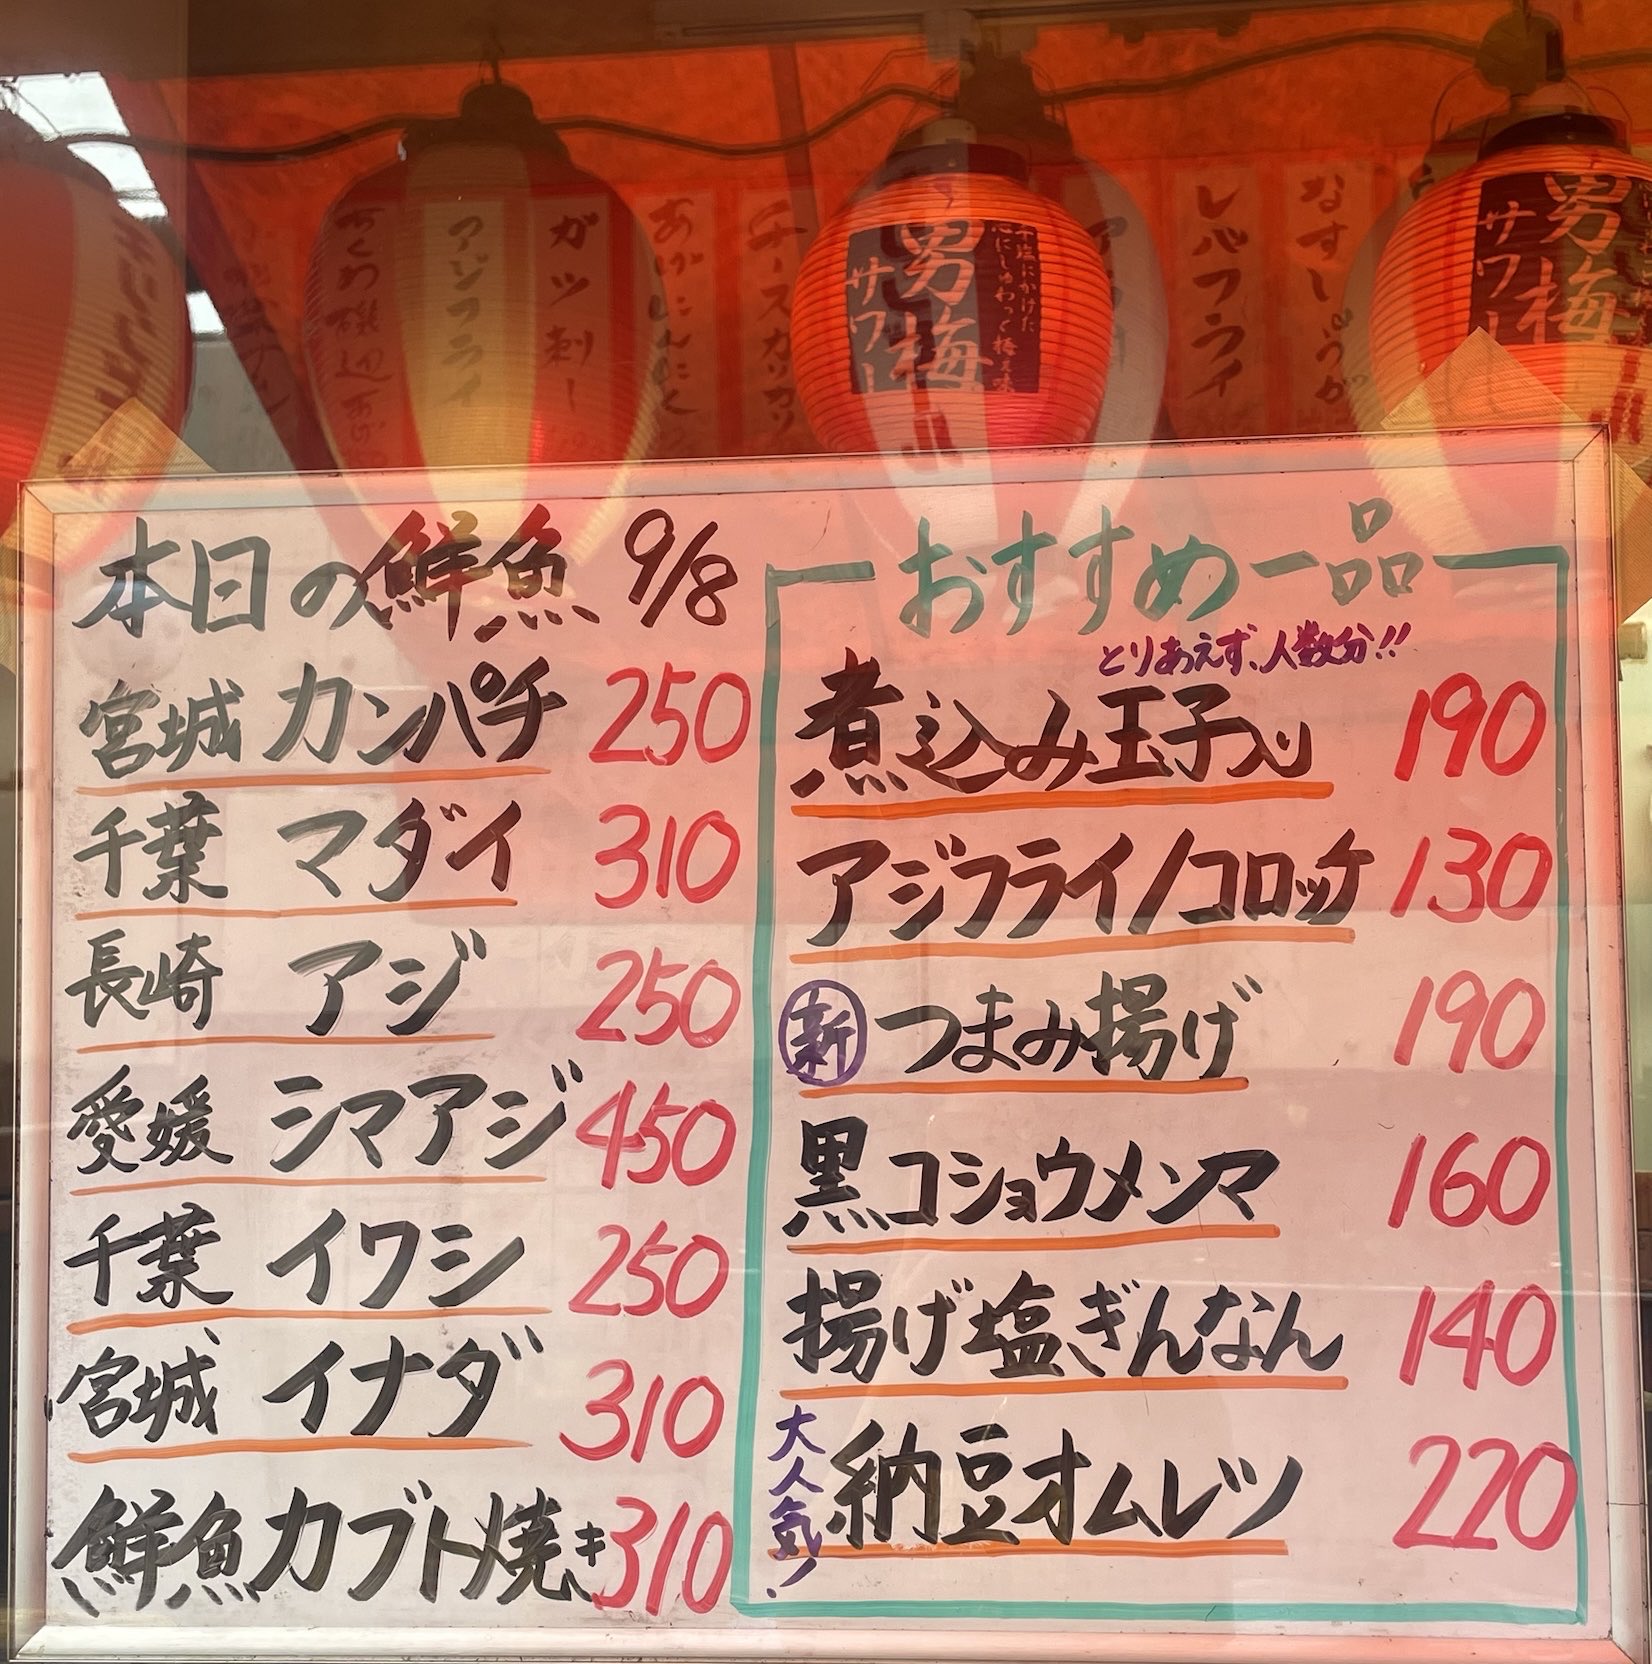 あくわ磯辺あげ
アジフライ
ガツ刺し
あげにんにく
チーズカリカリ
レバフライ
なすしょうが
男梅
サワー
男梅
サワー
本日の鮮魚 9/8
宮城 カンパチ 250
千葉 マダイ 310
長崎 アジ 250
愛媛 シマアジ 450
千葉 イワシ 250
宮城 イナダ 310
鮮魚カブト焼き 310
おすすめ一品
とりあえず、人数分!!
煮込み玉子入り 190
アジフライ/コロッケ 130
新 つまみ揚げ 190
黒コショウメンマ 160
揚げ塩ぎんなん 140
大人気!
納豆オムレツ 220